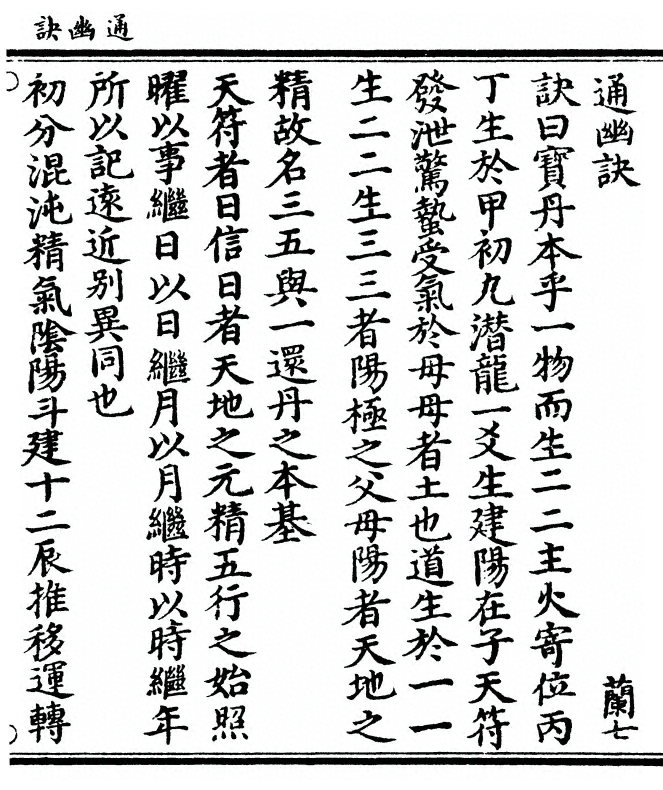 通幽訣
通幽訣 蘭七
訣曰寶丹本乎一物而生二二主火寄位丙
丁生於甲初九潛龍一爻生建陽在子天符
發泄驚蟄受氣於母母者土也道生於一一
生二二生三三者陽極之父母陽者天地之
精故名三五與一還丹之本基
天符者日信日者天地之元精五行之始照
曜以事繼日以日繼月以月繼時以時繼年
所以記遠近別異同也
初分混沌精氣陰陽斗建十二辰推移運轉